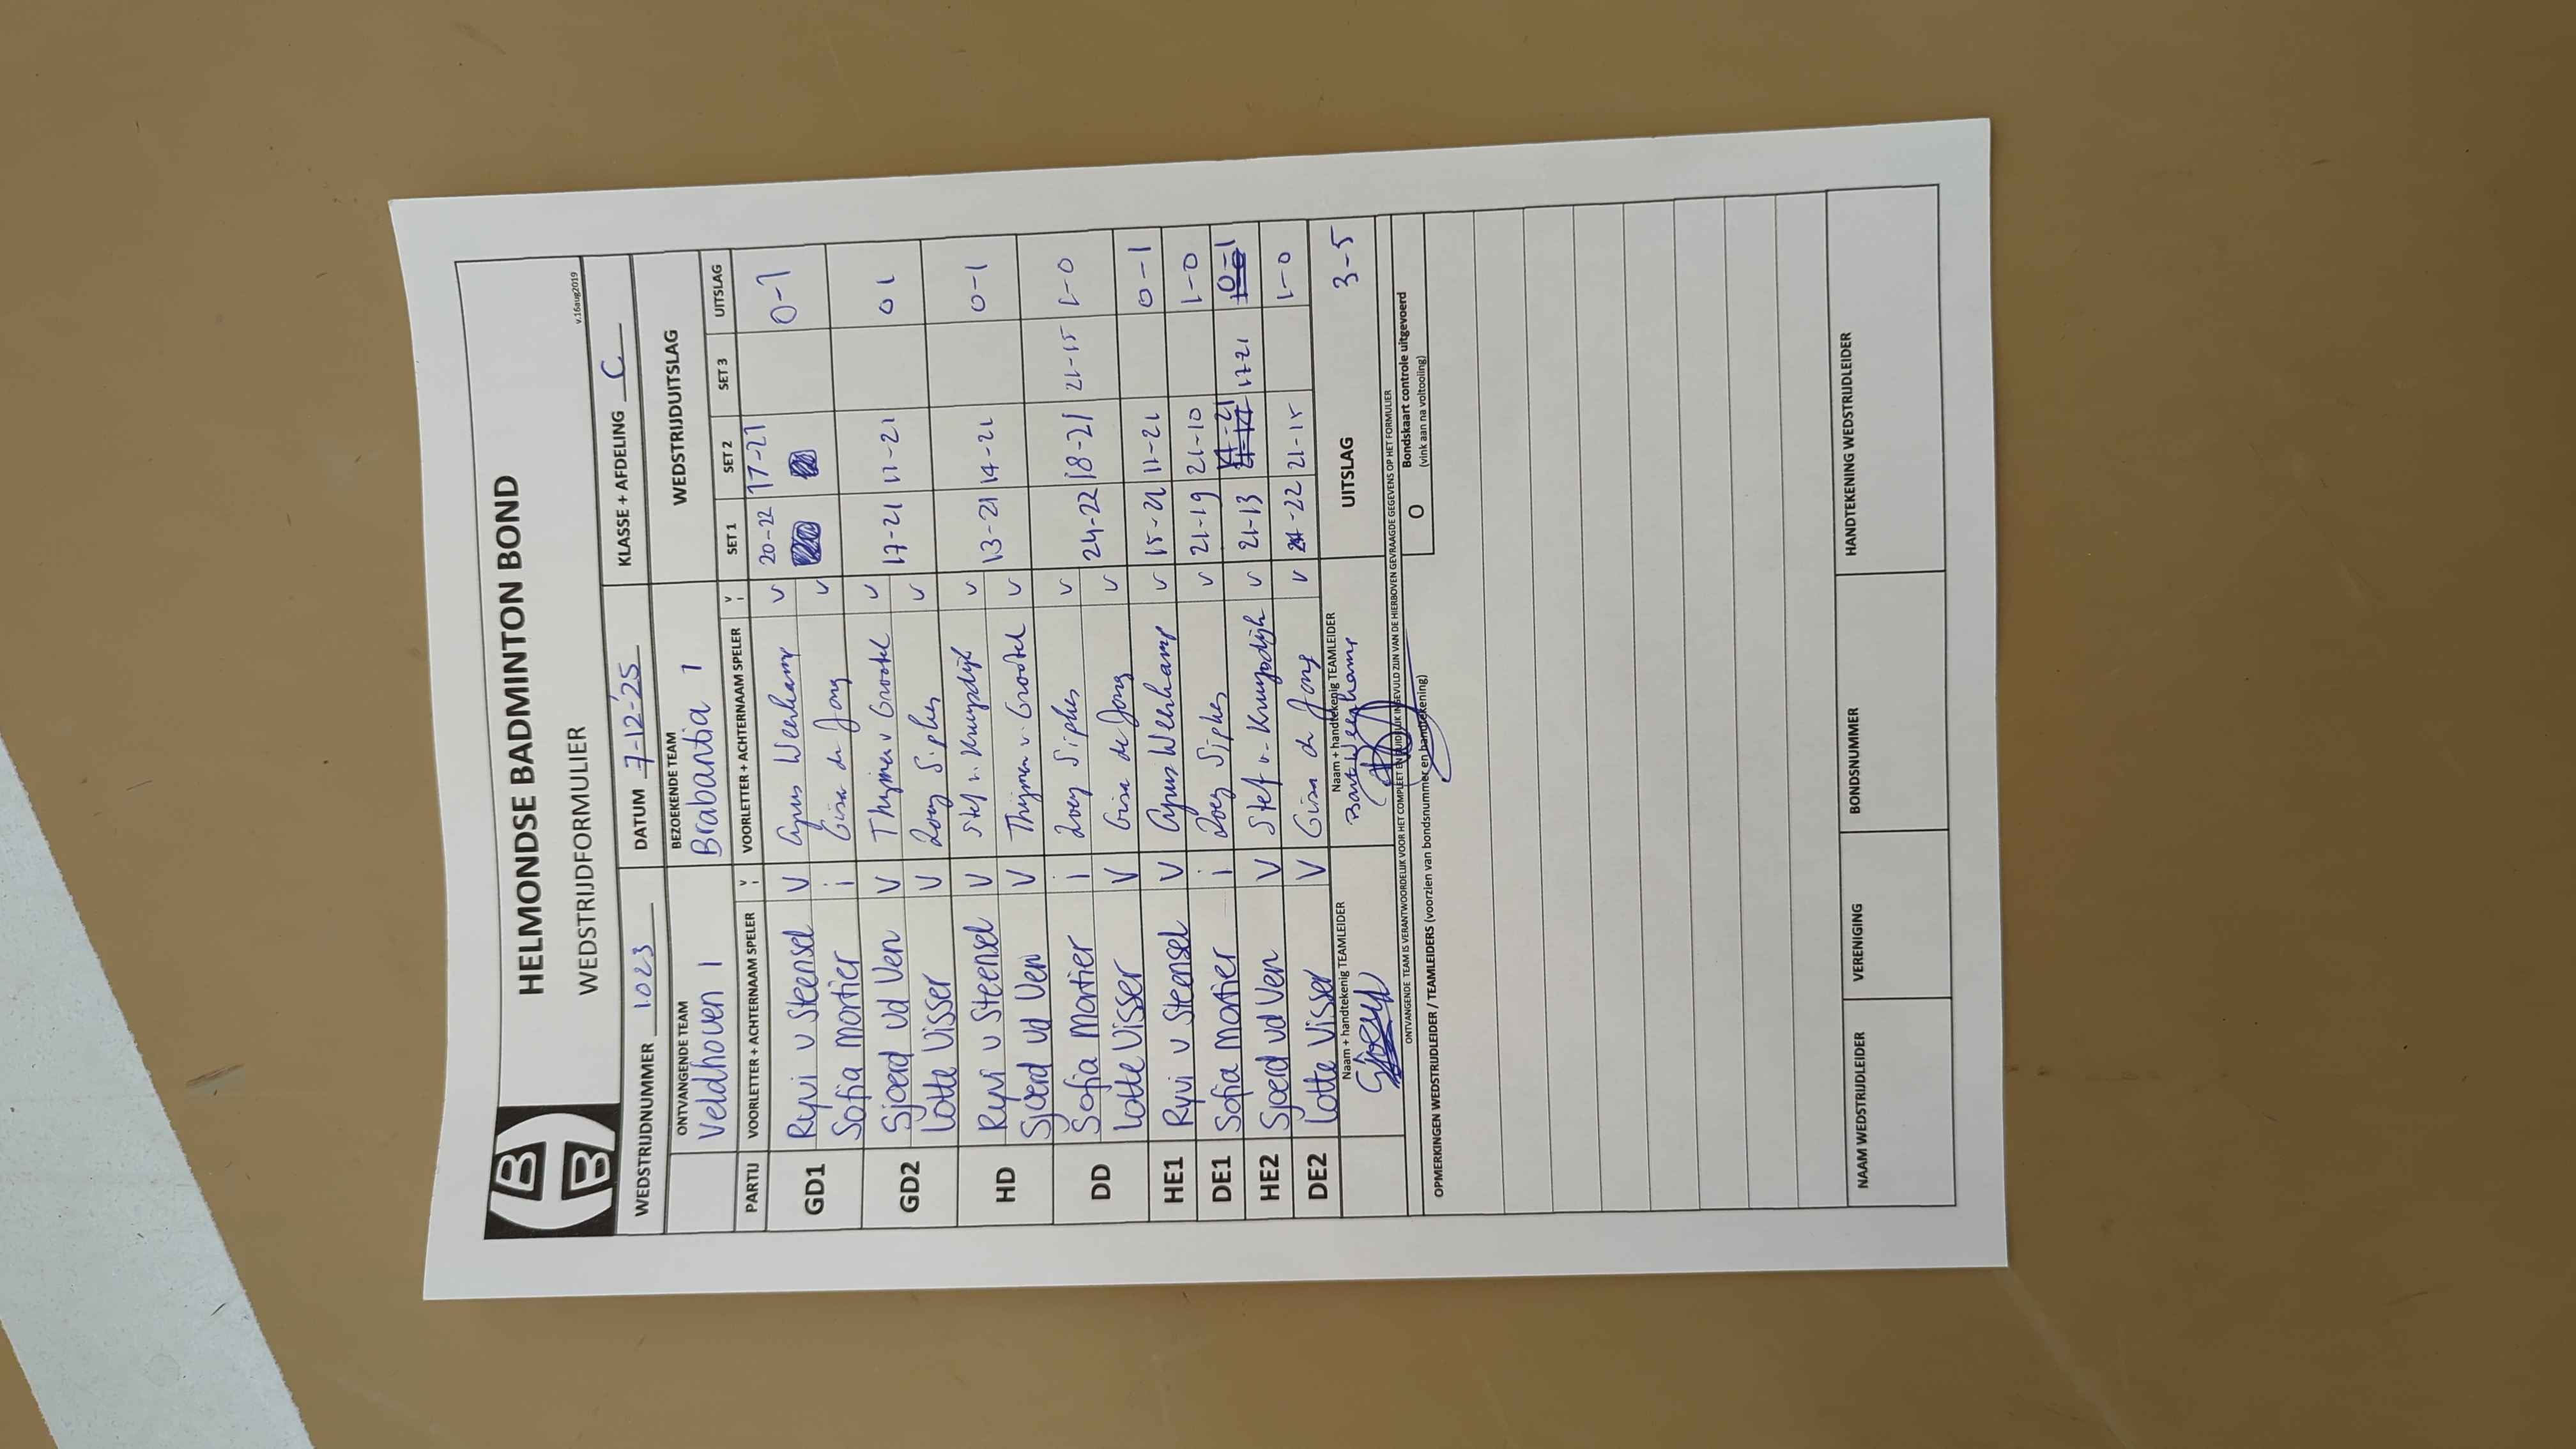 HELMONDSE BADMINTON BOND
WEDSTRIJDFORMULIER
v.16aug2019
WEDSTRIJDNUMMER 1023 DATUM 7-12-'25 KLASSE + AFDELING C
ONTVANGENDE TEAM BEZOEKENDE TEAM WEDSTRIJDUITSLAG
Veldhoven 1 Brabantia 1
PARTIJ VOORLETTER + ACHTERNAAM SPELER V i VOORLETTER + ACHTERNAAM SPELER V i SET 1 SET 2 SET 3 UITSLAG
GD1 Ryvi v Steensel V Cyrus Weerkamp v 20-22 17-21 0-1
Sofia Mortier i Gisa de Jong v
GD2 Sjoerd vd Ven V Thijmen v Grootel v 17-21 11-21 0 1
Lotte Visser V Zoey Sipkes v
HD Ryvi v Steensel V Stef v. Kruysdijk v 13-21 14-21 0-1
Sjoerd vd Ven V Thijmen v. Grootel v
DD Sofia Mortier i Zoey Sipkes v 24-22 18-21 21-15 1-0
Lotte Visser V Gisa de Jong v
HE1 Ryvi v Steensel V Cyrus Weerkamp v 15-21 11-21 0-1
DE1 Sofia Mortier i Zoey Sipkes v 21-19 21-10 1-0
HE2 Sjoerd vd Ven V Stef v. Kruysdijk v 21-13 17-21 0-1
DE2 Lotte Visser V Gisa de Jong v 24-22 21-15 1-0
Naam + handtekenig TEAMLEIDER Naam + handtekenig TEAMLEIDER UITSLAG 3-5
Sjoerd Bart Weerkamp
ONTVANGENDE TEAM IS VERANTWOORDELIJK VOOR HET COMPLEET EN DUIDELIJK INGEVULD ZIJN VAN DE HIERBOVEN GEVRAAGDE GEGEVENS OP HET FORMULIER
O Bondskaart controle uitgevoerd
(vink aan na voltooiing)
OPMERKINGEN WEDSTRIJDLEIDER / TEAMLEIDERS (voorzien van bondsnummer en handtekening)
NAAM WEDSTRIJDLEIDER VERENIGING BONDSNUMMER HANDTEKENING WEDSTRIJDLEIDER